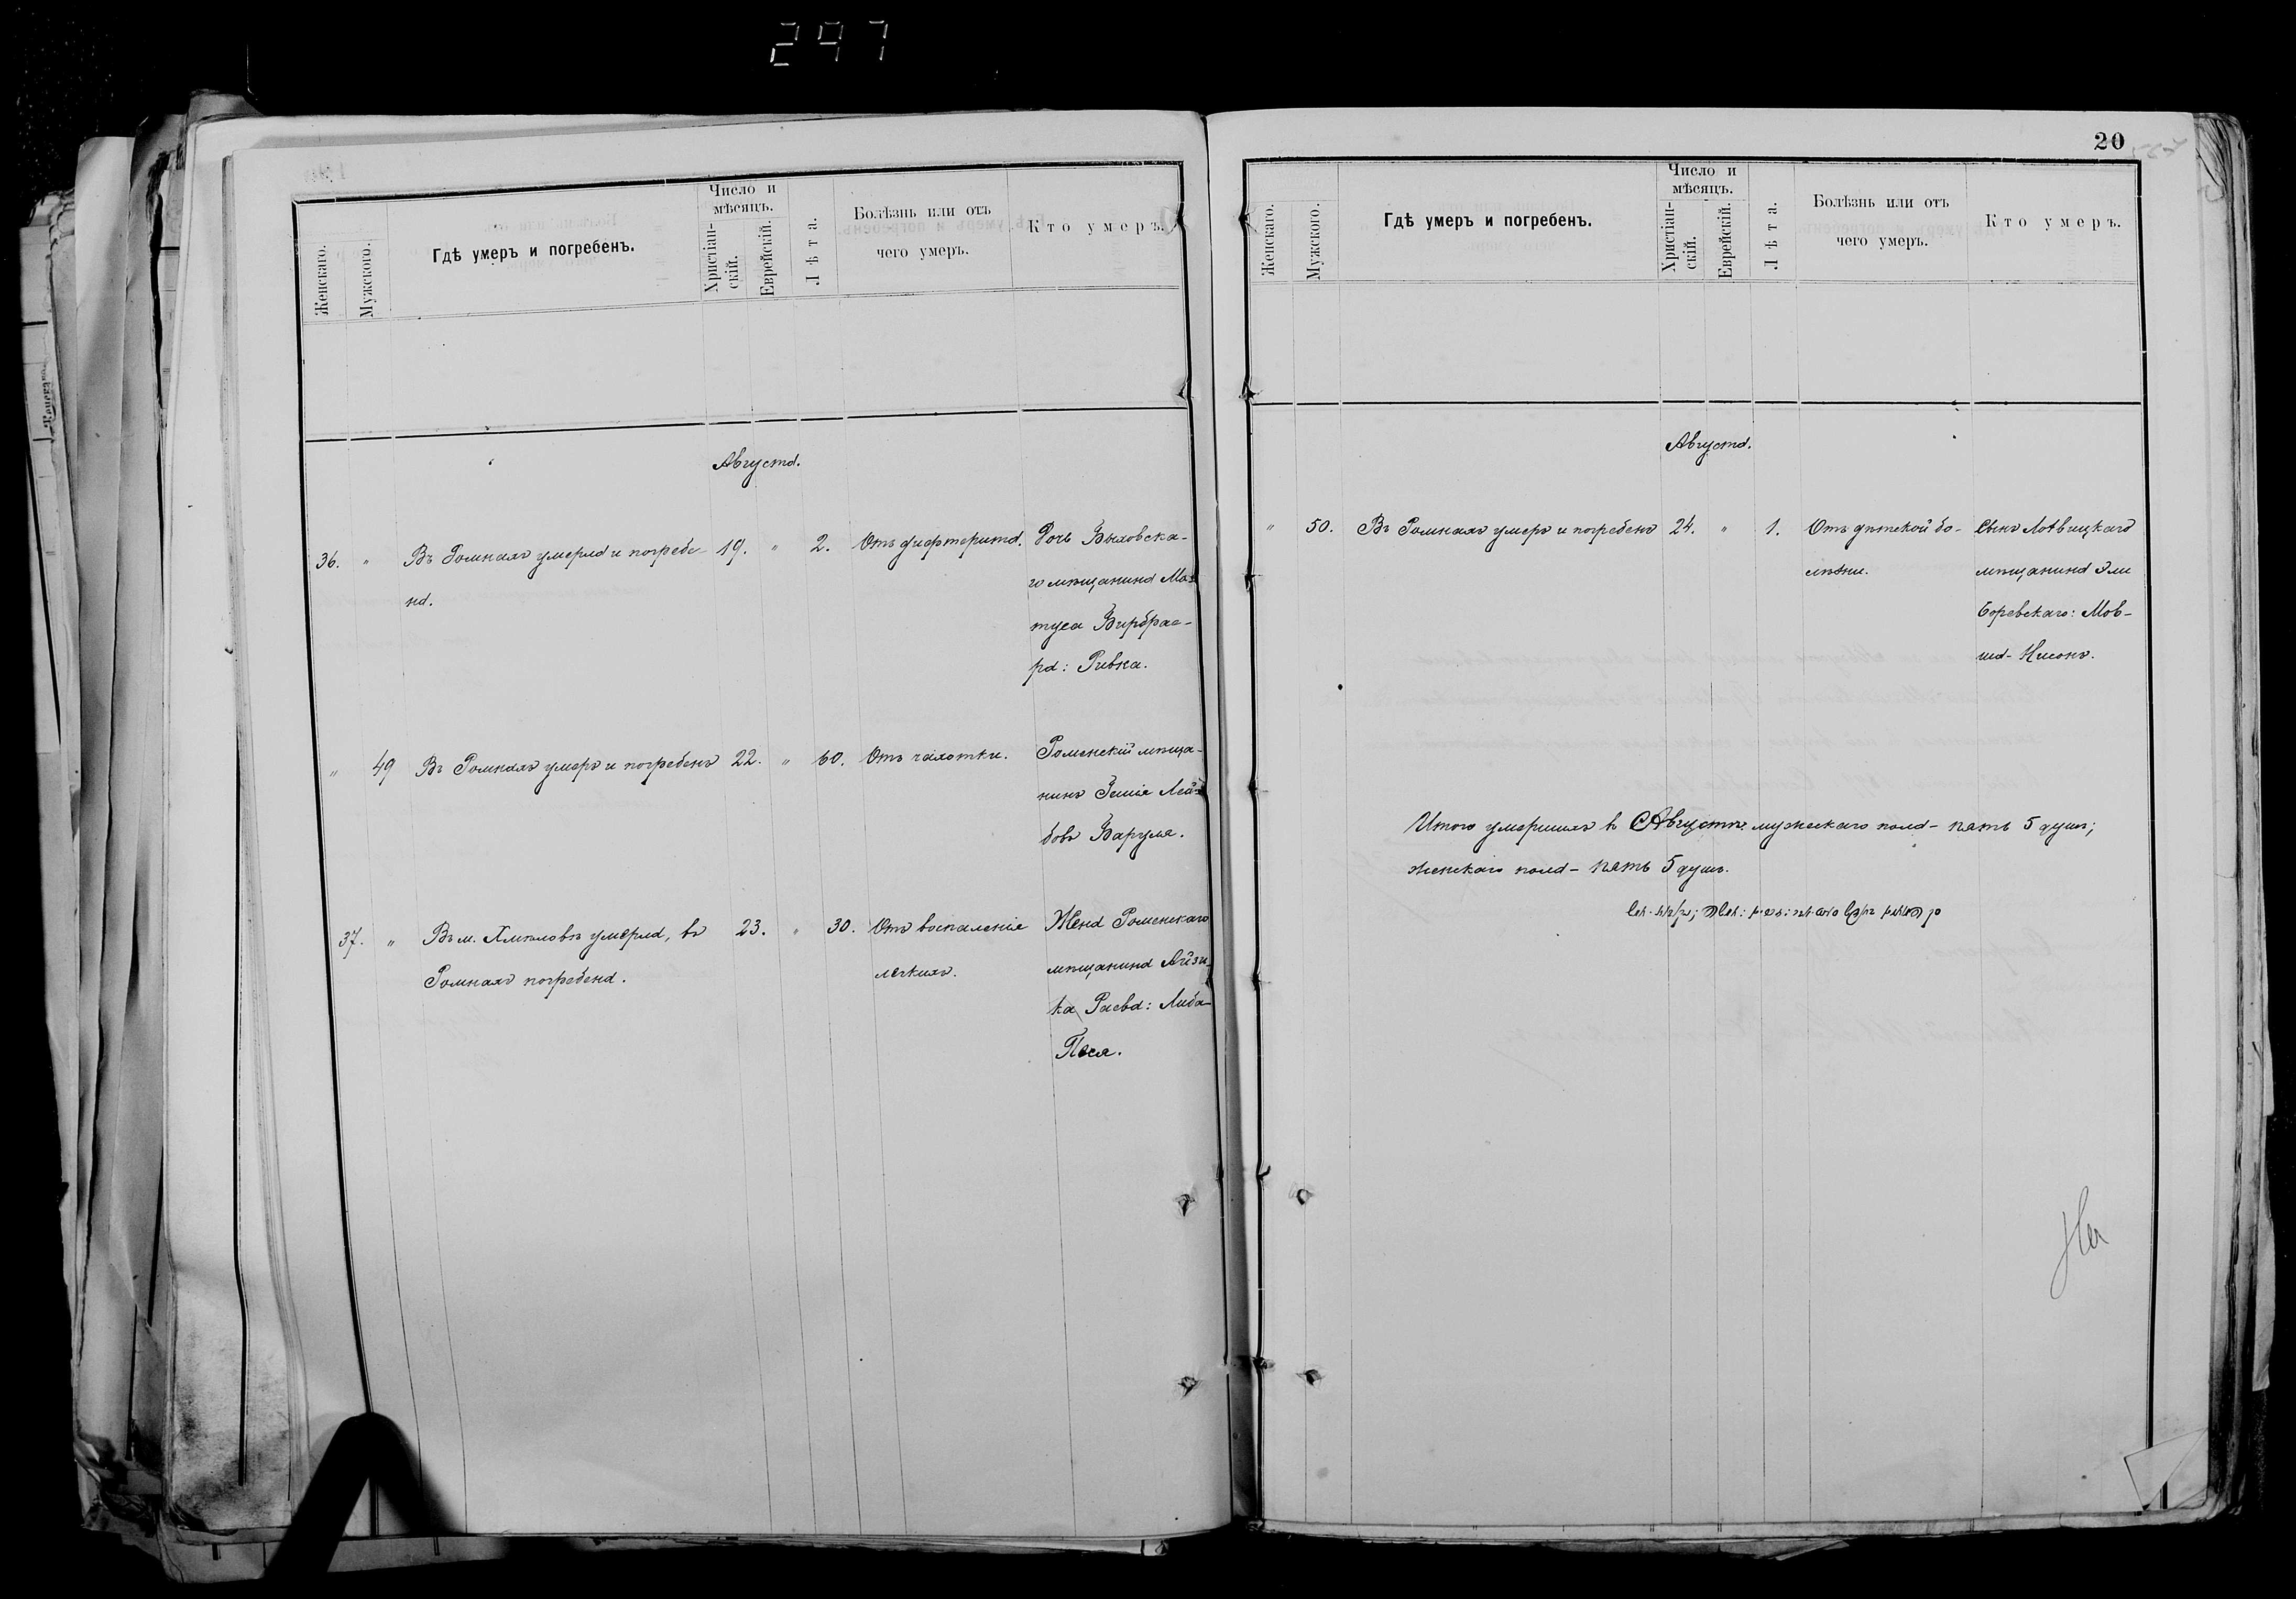 297
Женскаго.
Мужского.
Гдѣ умеръ и погребенъ.
Число и
мѣсяцъ.
Христіан-
скій.
Еврейскій.
Лѣта.
Болѣзнь или отъ
чего умеръ.
Кто умеръ.
Августа.
36. " Въ Ромнахъ умерла и погребе- 19. " 2. Отъ дифтерита. Дочь Быховска-
на.
го мѣщанина Мо-
туса Вирбрае-
ра: Ривка.
" 49 Въ Ромнахъ умеръ и погребенъ 22. " 60. Отъ чахотки. Роменскій мѣща-
нинъ Зешіе Лей-
бовъ Варгуля.
37. " Въ м. Хмѣловѣ умерла, въ 23. " 30. Отъ воспаленіе Жена Роменскаго
Ромнахъ погребена.
легкихъ.
мѣщанина Айзи-
ка Раева: Либа-
Песя.
20
Женскаго.
Мужского.
Гдѣ умеръ и погребенъ.
Число и
мѣсяцъ.
Христіан-
скій.
Еврейскій.
Лѣта.
Болѣзнь или отъ
чего умеръ.
Кто умеръ.
Августа.
" 50. Въ Ромнахъ умеръ и погребенъ 24. " 1. Отъ дѣтской бо- Сынъ Лохвицкаго
лѣзни.
мѣщанина Эли
Боревскаго: Мов-
ша-Нисонъ.
Итого умершихъ въ Августѣ мужескаго пола - пять 5 душъ;
женскаго пола - пять 5 душъ.
На